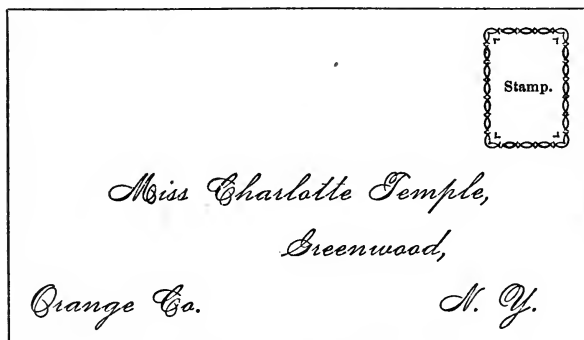 Stamp.
Miss Charlotte Temple,
Greenwood,
Orange Co. N. Y.